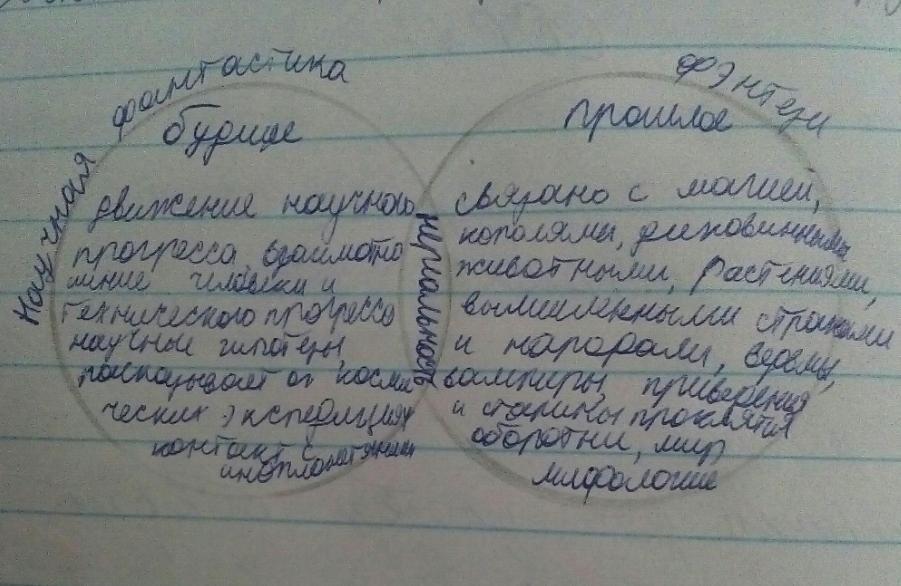 Научная фантастика
будище
движение научного
прогресса, взаимотно
шение человека и
технического прогресса
научные гипотезы,
расказывает от косми
ческих экспедициях
контакт с
инопланетянами
нериальность
Фэнтези
прошлое
связано с магией,
королямы, диковинными
животными, растениями,
вымышленными странами
и народами, ведьмы,
вампиры, приведения
и старины проклятия
оборотни, мир
мифологии